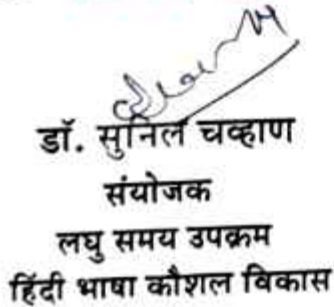 डॉ. सुनिल चव्हाण
संयोजक
लघु समय उपक्रम
हिंदी भाषा कौशल विकास